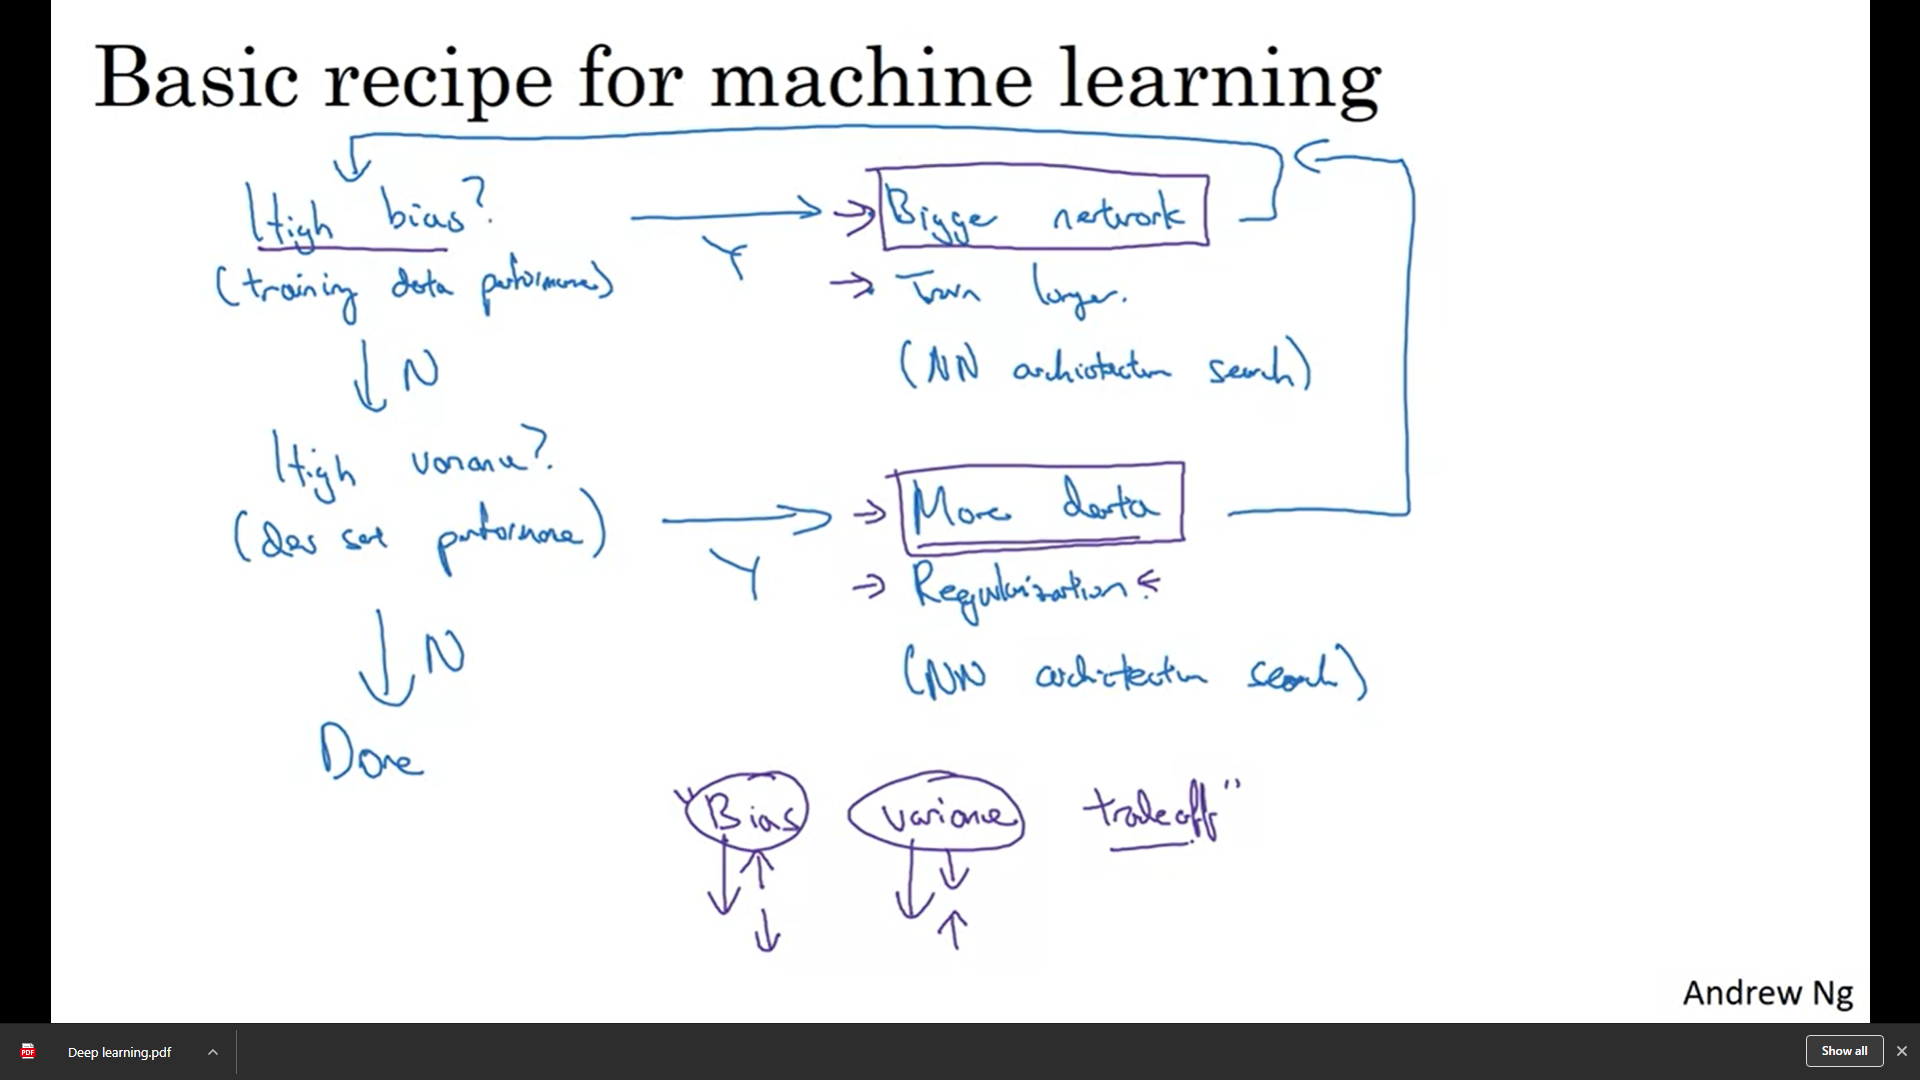 Basic recipe for machine learning
High bias?
(training data performance)
Y
Bigger network
Train longer.
(NN architecture search)
N
High variance?
(dev set performance)
Y
More data
Regularization.
(NN architecture search)
N
Done
"Bias variance tradeoff"
Andrew Ng
PDF
Deep learning.pdf
Show all